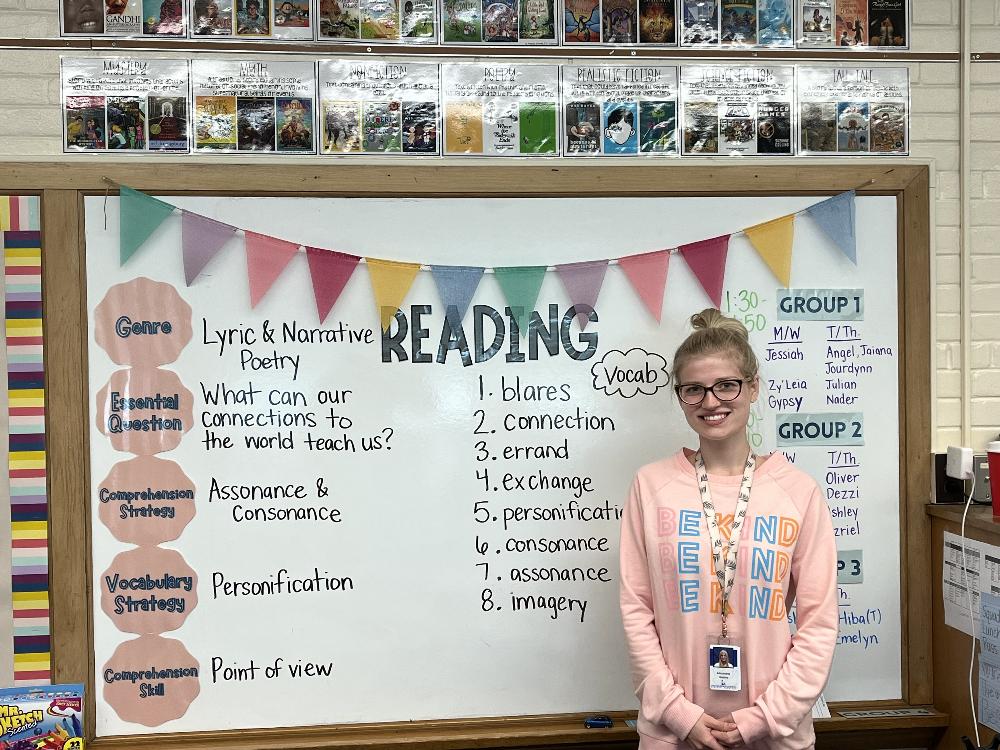 GANDHI
MYSTERY
MYTH
NONFICTION
POETRY
REALISTIC FICTION
SCIENCE FICTION
TALL TALE
READING
Genre
Lyric & Narrative
Poetry
Essential
Question
What can our
connections to
the world teach us?
Comprehension
Strategy
Assonance &
Consonance
Vocabulary
Strategy
Personification
Comprehension
Skill
Point of view
Vocab
1. blares
2. connection
3. errand
4. exchange
5. personificatio
6. consonance
7. assonance
8. imagery
1:30-
50
GROUP 1
M/W
T/Th.
Jessiah
Angel, Jaiana
Jourdynn
Zy'Leia
Julian
Gypsy
Nader
GROUP 2
T/Th.
Oliver
Dezzi
shley
zriel
P 3
Hiba(T)
Emelyn
BE KIND
BE KIND
BE KIND
MR.
SKETCH
Scented
22